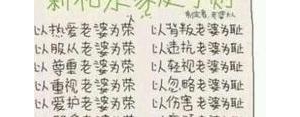 新和谐家庭守则
以热爱老婆为荣 以背叛老婆为耻
以服从老婆为荣 以违抗老婆为耻
以尊重老婆为荣 以轻视老婆为耻
以重视老婆为荣 以忽略老婆为耻
以爱护老婆为荣 以伤害老婆为耻